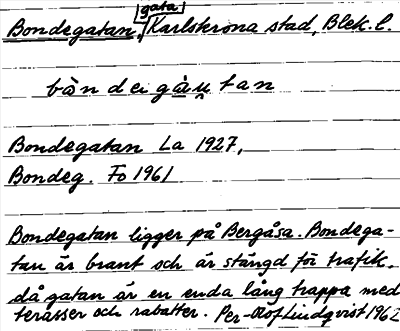 Bondegatan, gata Karlskrona stad, Blek. l.
bòndeigà̤u̯tan
Bondegatan La 1927,
Bondeg. Fo 1961
Bondegatan ligger på Bergåsa. Bondega-
tan är brant och är stängd för trafik,
då gatan är en enda lång trappa med
terasser och rabatter. Per-Olof Lindqvist 1962